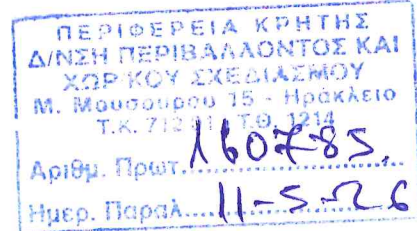 ΠΕΡΙΦΕΡΕΙΑ ΚΡΗΤΗΣ
Δ/ΝΣΗ ΠΕΡΙΒΑΛΛΟΝΤΟΣ ΚΑΙ
ΧΩΡ ΚΟΥ ΣΧΕΔΙΑΣΜΟΥ
Μ. Μουσούρου 15 - Ηράκλειο
Τ.Κ. 712 Τ.Θ. 1214
Αριθμ. Πρωτ. 160785
Ημερ. Παραλ. 11-5-26